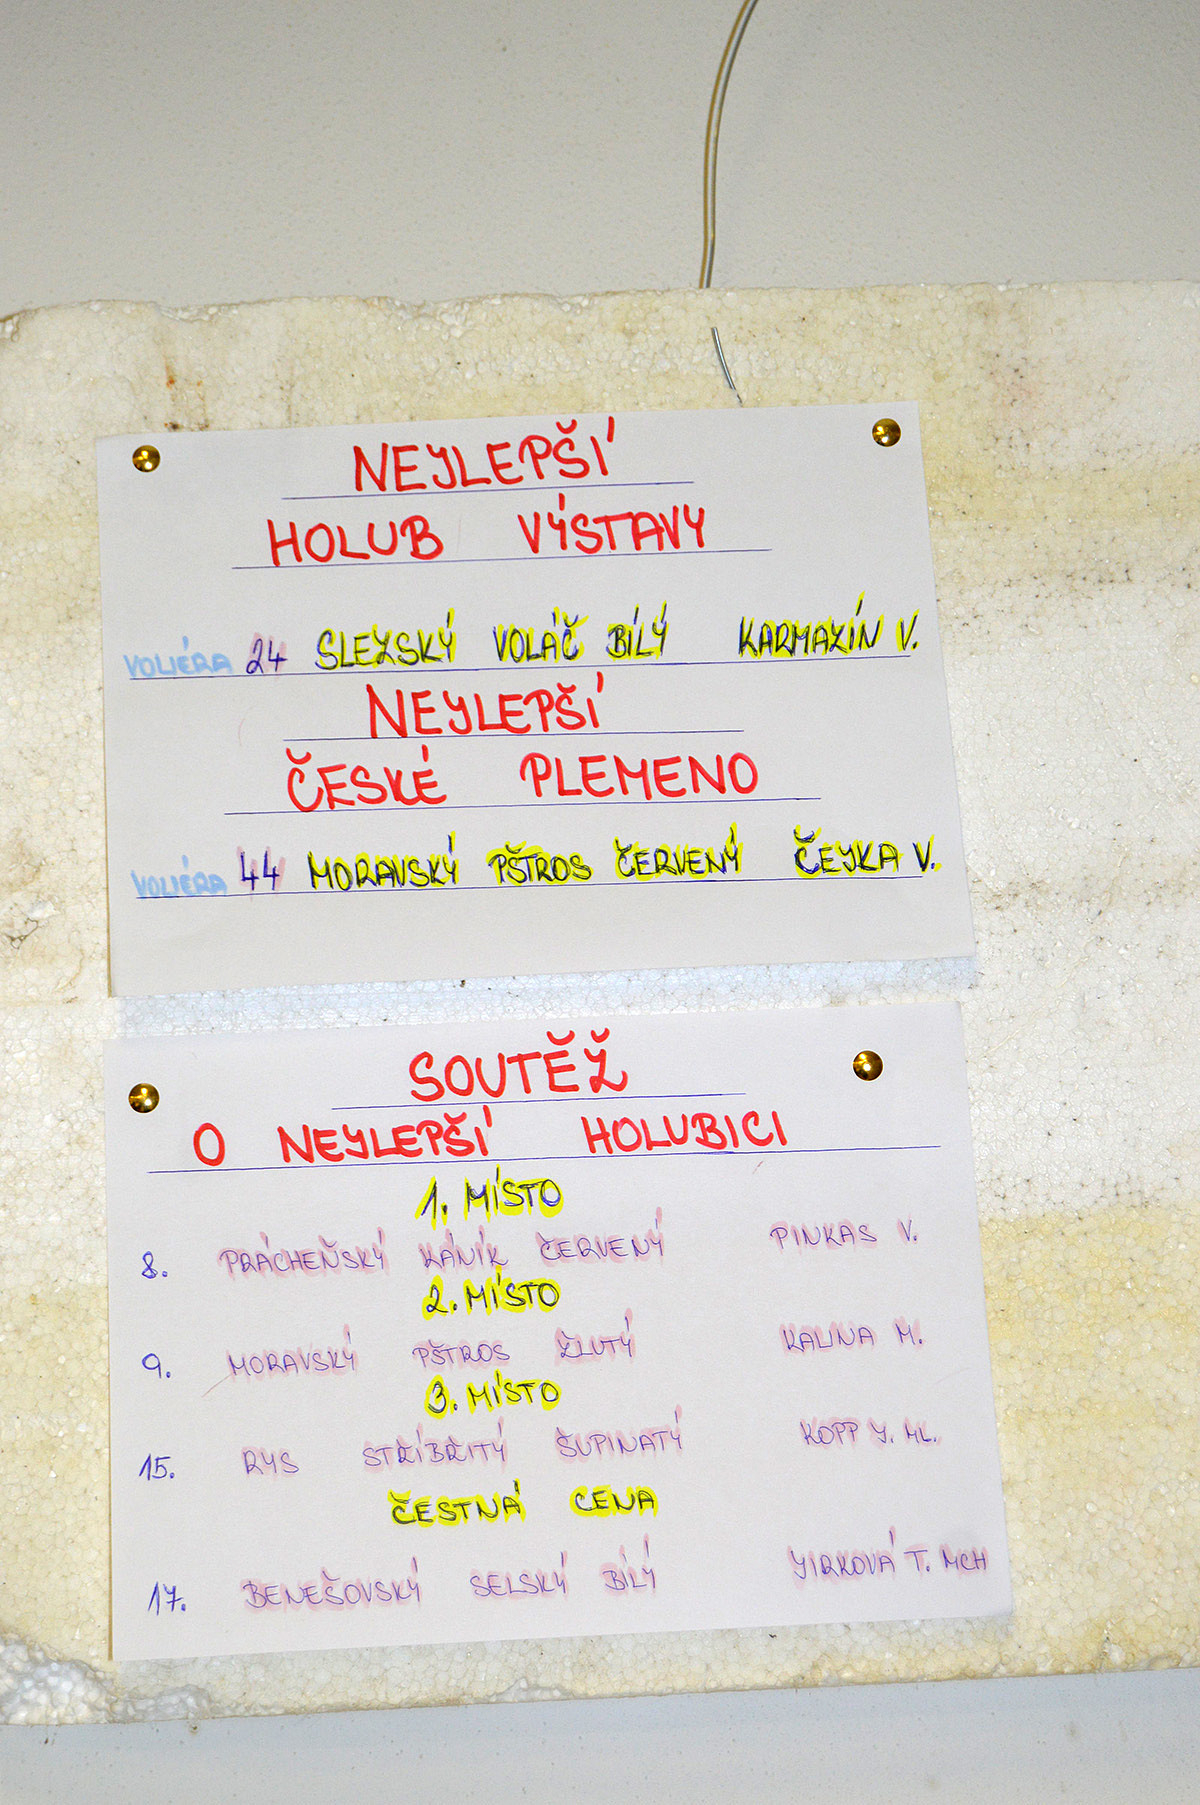 NEJLEPŠÍ
HOLUB VÝSTAVY
VOLIÉRA 24 SLEZSKÝ VOLÁČ BÍLÝ KARMAZÍN V.
NEJLEPŠÍ
ČESKÉ PLEMENO
VOLIÉRA 44 MORAVSKÝ PŠTROS ČERVENÝ ČEJKA V.
SOUTĚŽ
O NEJLEPŠÍ HOLUBICI
1. MÍSTO
8. PRÁCHEŇSKÝ KÁNÍK ČERVENÝ PINKAS V.
2. MÍSTO
9. MORAVSKÝ PŠTROS ŽLUTÝ KALINA M.
3. MÍSTO
15. RYS STŘÍBŘITÝ ŠUPINATÝ KOPP J. ML.
ČESTNÁ CENA
17. BENEŠOVSKÝ SELSKÝ BÍLÝ JIRKOVÁ T. MCH